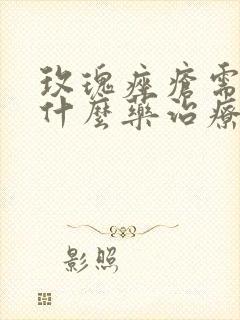 玫瑰痤瘡需
什麼藥治療
影照